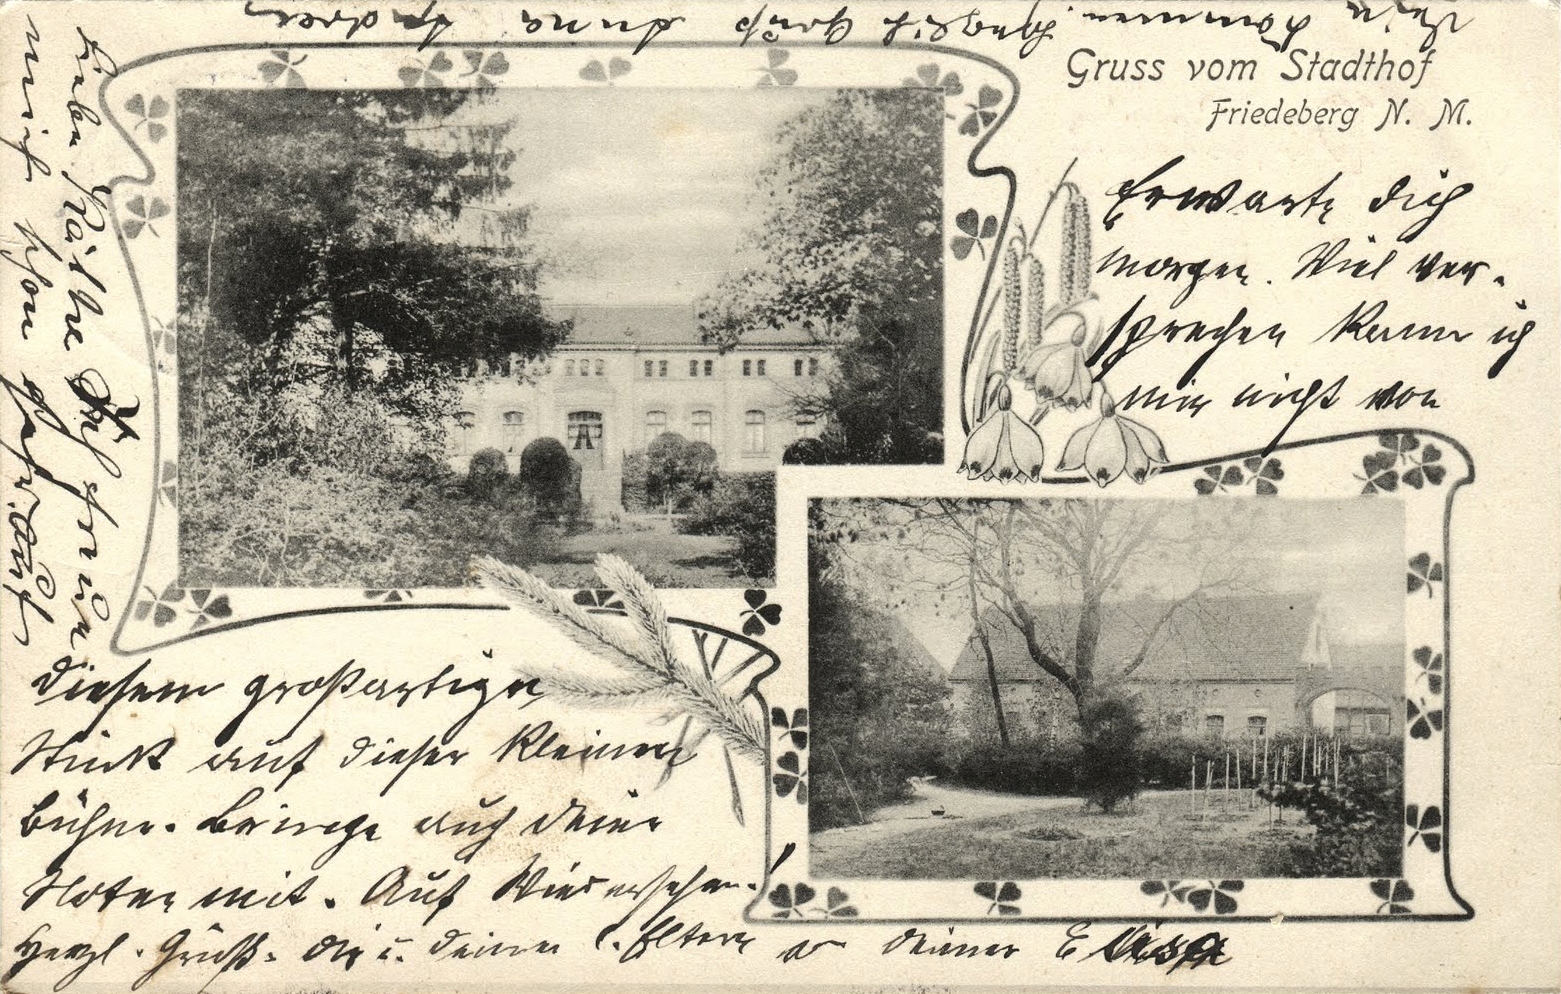 Gruss vom Stadthof
Friedeberg N. M.
Erwarte dich
morgen. Viel ver-
sprechen kann ich
mir nicht von
diesem großartigen
Stück auf dieser kleinen
Bühne. Bringe auch deine
Noten mit. Auf Wiedersehen!
Herzl. Grüße dir u. deinen l. Eltern v deiner Elisa
Liebe Käthe Ich freue
mich schon sehr auf
dein Kommen. Gruß Anna